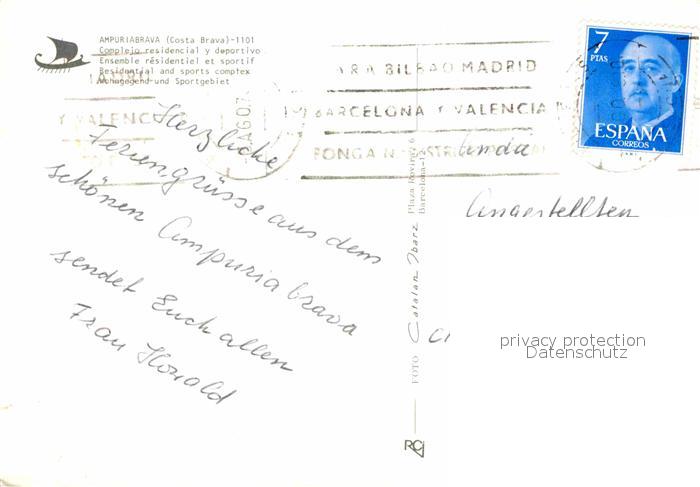 AMPURIABRAVA (Costa Brava)-1101
Complejo residencial y deportivo
Ensemble résidentiel et sportif
Residential and sports complex
Wohngegend und Sportgebiet
ARA BILBAO MADRID
BARCELONA Y VALENCIA
PONGA
7
PTAS
ESPAÑA
CORREOS
Herzliche
Feriengrüsse aus dem
schönen Ampuria brava
sendet Euch allen
Frau Howald
FOTO Catalan Ibarz Plaza Rovira, 6
Barcelona-12
und
Angestellten
privacy protection
Datenschutz